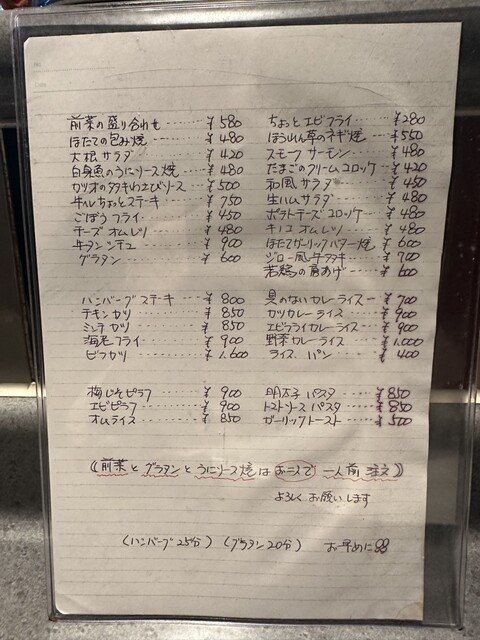 前菜の盛り合わせ ¥580
ほたての包み焼 ¥480
大根サラダ ¥420
白身魚のうにソース焼 ¥480
カツオのタタキわさびソース ¥500
牛ヒレちょっとステーキ ¥750
ごぼうフライ ¥450
チーズオムレツ ¥480
牛タンシチュー ¥900
グラタン ¥600
ちょっとエビフライ ¥280
ほうれん草のネギ焼 ¥550
スモークサーモン ¥480
たまごのクリームコロッケ ¥420
和風サラダ ¥450
生ハムサラダ ¥480
ポテトチーズコロッケ ¥480
キノコオムレツ ¥480
ほたてガーリックバター焼 ¥600
ジロー風牛タタキ ¥700
若鶏の唐あげ ¥600
ハンバーグステーキ ¥800
チキンカツ ¥850
ミンチカツ ¥850
海老フライ ¥900
ビフカツ ¥1.600
具のないカレーライス ¥700
カツカレーライス ¥900
エビフライカレーライス ¥900
野菜カレーライス ¥1.000
ライス パン ¥400
梅じそピラフ ¥900
エビピラフ ¥900
オムライス ¥850
明太子パスタ ¥850
トマトソースパスタ ¥850
ガーリックトースト ¥500
((前菜とグラタンとうにソース焼はお二人で一人前注文))
よろしくお願いします
(ハンバーグ25分) (グラタン20分) お早めに